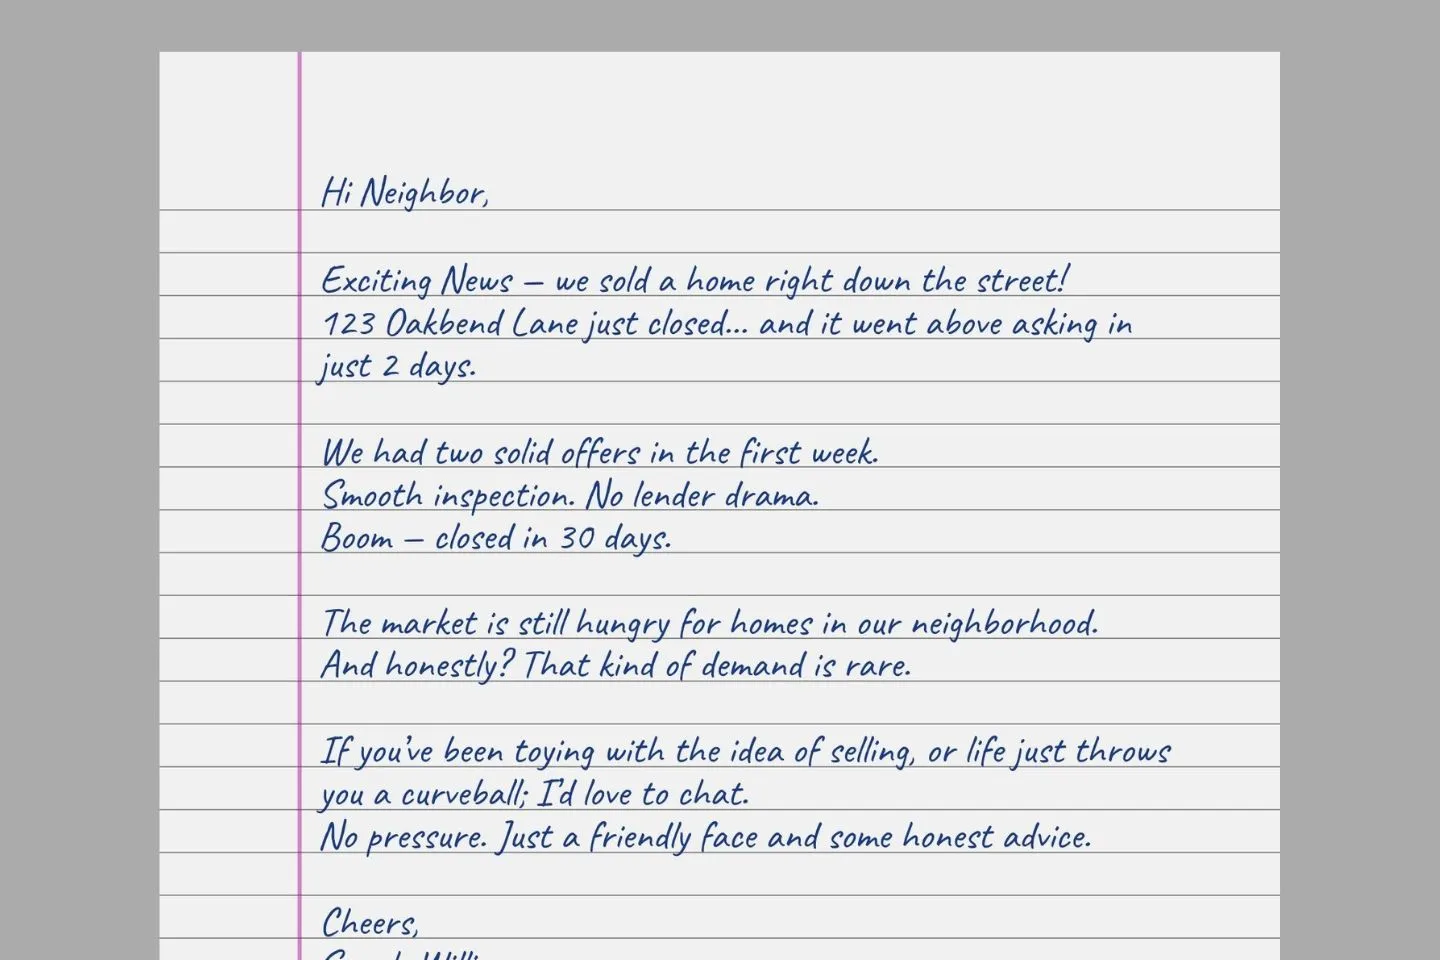 Hi Neighbor,
Exciting News – we sold a home right down the street!
123 Oakbend Lane just closed... and it went above asking in
just 2 days.
We had two solid offers in the first week.
Smooth inspection. No lender drama.
Boom – closed in 30 days.
The market is still hungry for homes in our neighborhood.
And honestly? That kind of demand is rare.
If you've been toying with the idea of selling, or life just throws
you a curveball; I'd love to chat.
No pressure. Just a friendly face and some honest advice.
Cheers,